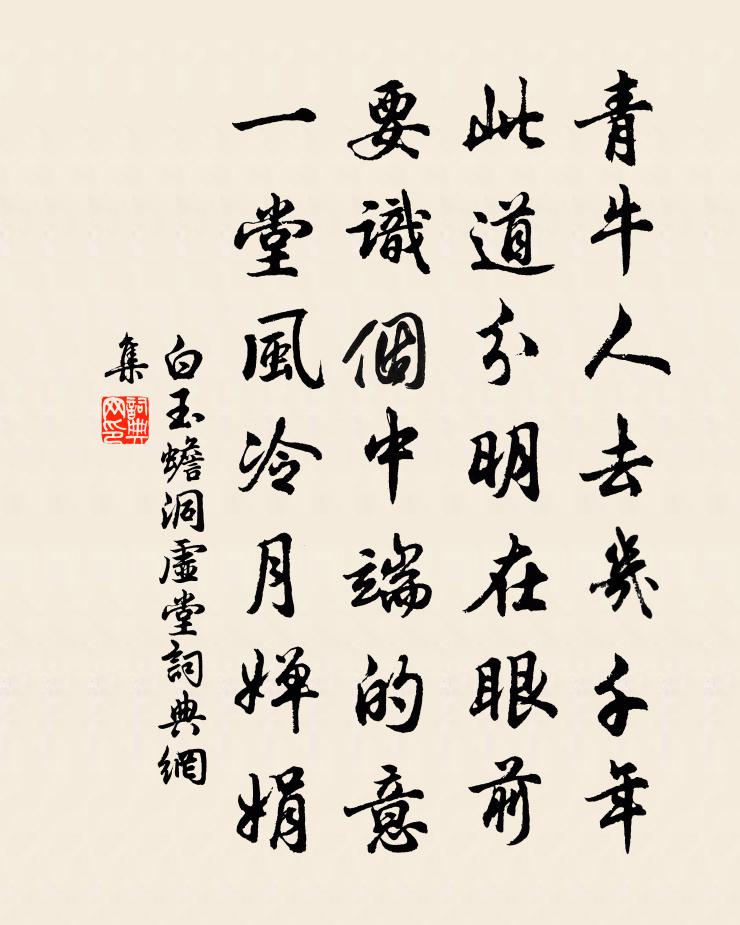 青牛人去幾千年
此道分明在眼前
要識個中端的意
一堂風冷月嬋娟
白玉蟾洞虛堂詞典網
集
詞典
网印